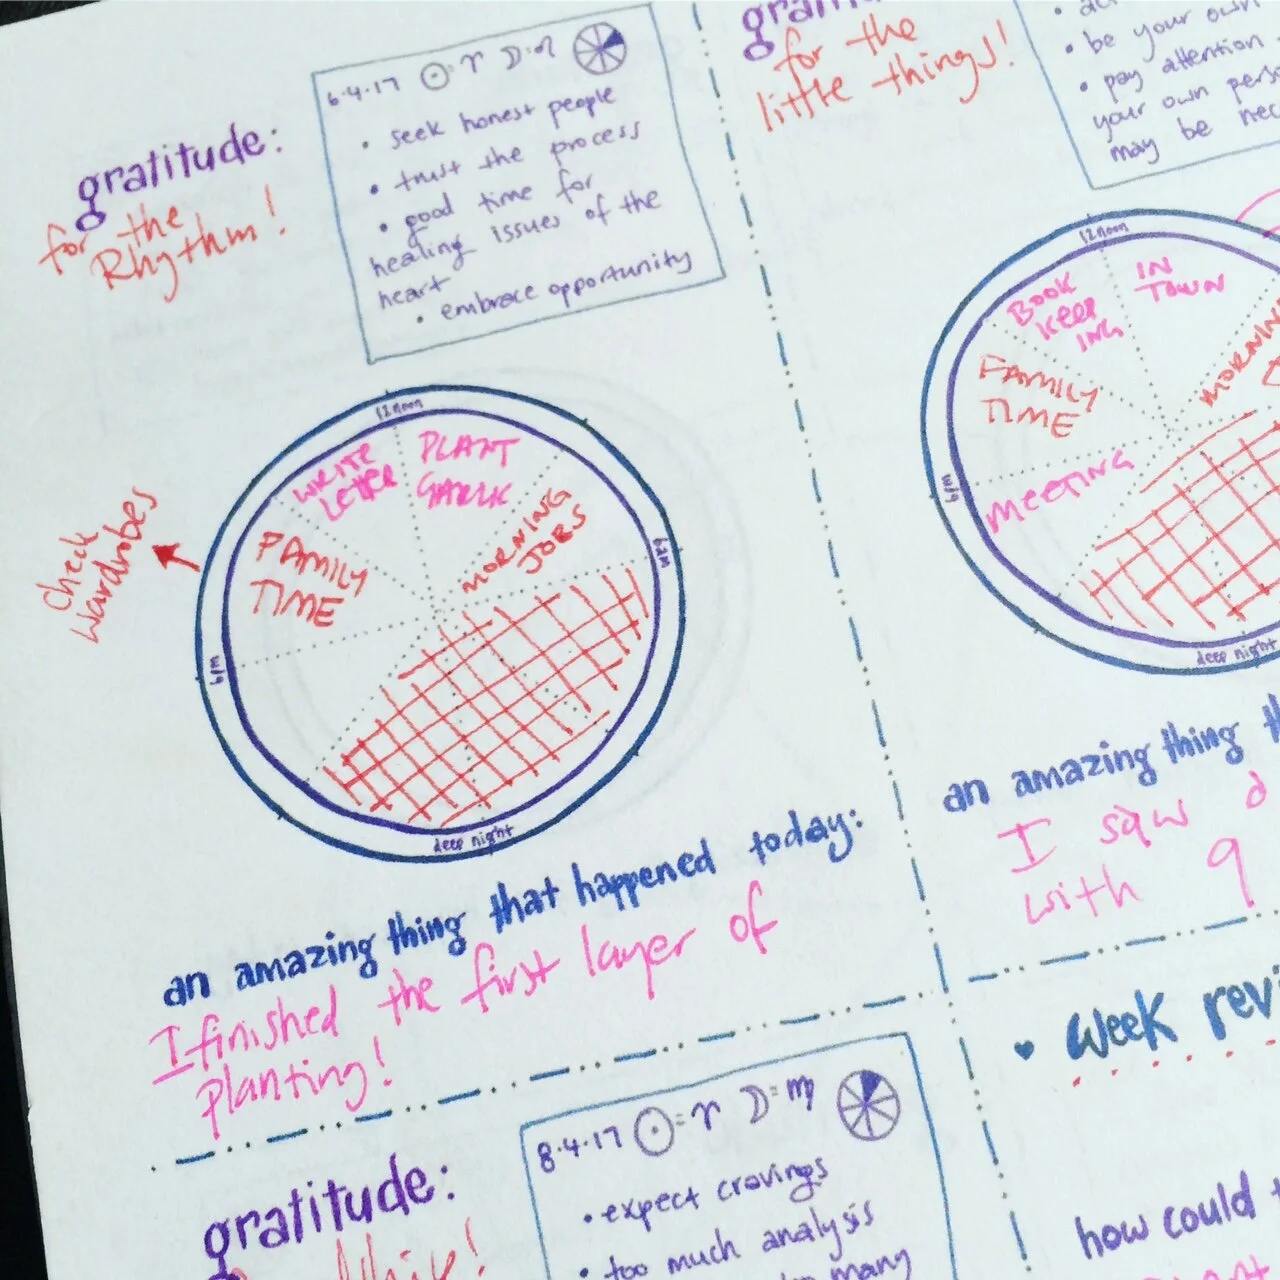 gratitude:
for the
Rhythm!
6.4.17 ☉=♈ ☽=♌
• seek honest people
• trust the process
• good time for
healing issues of the
heart
• embrace opportunity
12noon
WRITE
LETTER
PLANT
GARLIC
MORNING
JOBS
FAMILY
TIME
6am
6pm
deep night
check
wardrobes
an amazing thing that happened today:
I finished the first layer of
planting!
for the
little things!
• be your own
• pay attention
your own
may be
12noon
BOOK
KEEP
ING
IN
TOWN
FAMILY
TIME
MEETING
6pm
deep night
an amazing thing
I saw
with 9
♥ Week
how could
gratitude:
8.4.17 ☉=♈ ☽=♍
• expect cravings
• too much analysis
many